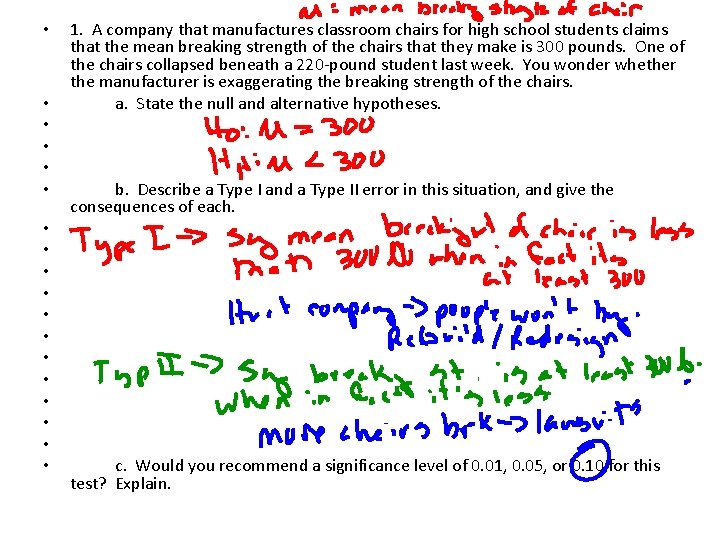 μ = mean breaking strength of chair
• 1. A company that manufactures classroom chairs for high school students claims
that the mean breaking strength of the chairs that they make is 300 pounds. One of
the chairs collapsed beneath a 220-pound student last week. You wonder whether
the manufacturer is exaggerating the breaking strength of the chairs.
• a. State the null and alternative hypotheses.
•
• H₀: μ = 300
• HA: μ < 300
• b. Describe a Type I and a Type II error in this situation, and give the
consequences of each.
• Type I → Say mean of chair is less
• than 300 when in fact its
• at least 300
• Hurt company → people won't buy.
• Rebuild / Redesign
• Type II → Say break st. is at least
• when in fact it is less
• more chairs brk → lawsuits
• c. Would you recommend a significance level of 0.01, 0.05, or 0.10 for this
test? Explain.